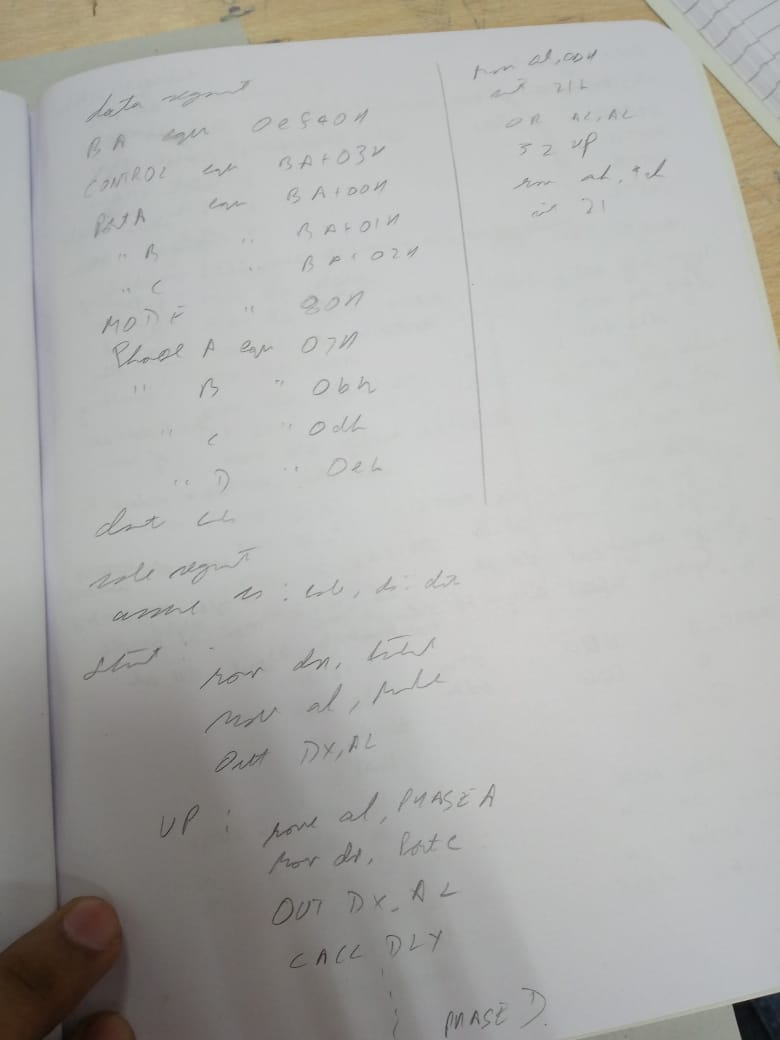 data segment
BA equ 0e540H
CONTROL equ BA+03H
Port A equ BA+00H
" B " BA+01H
" C " BA+02H
MODE " 80H
Phase A equ 07H
" B " 0bh
" C " 0dh
" D " 0eh
code segment
assume cs: , ds:
start :
mov dx,
mov al, mode
Out DX,AL
UP : move al, PHASE A
mov dx, Port C
OUT DX, AL
CALL DLY
PHASE D
int 21h
OR AL,AL
JZ UP
mov ah,
int 21